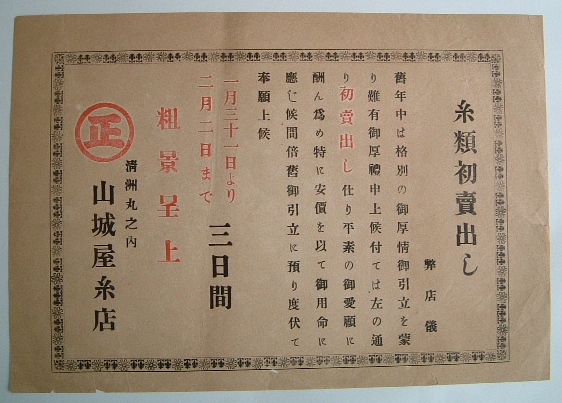 糸類初賣出し
弊店儀
舊年中は格別の御厚情御引立を蒙
り難有御厚禮申上候付ては左の通
り初賣出し仕り平素の御愛顧に
酬ん爲め特に安價を以て御用命に
應じ候間倍舊御引立に預り度伏て
奉願上候
一月三十一日より
二月二日まで
三日間
粗景呈上
正
清洲丸之内
山城屋糸店